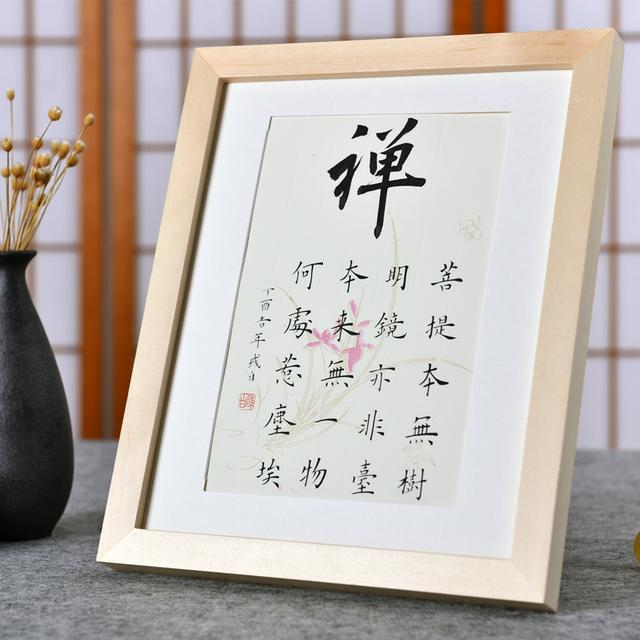 禅
菩提本無樹
明鏡亦非臺
本来無一物
何處惹塵埃
丁酉吉年